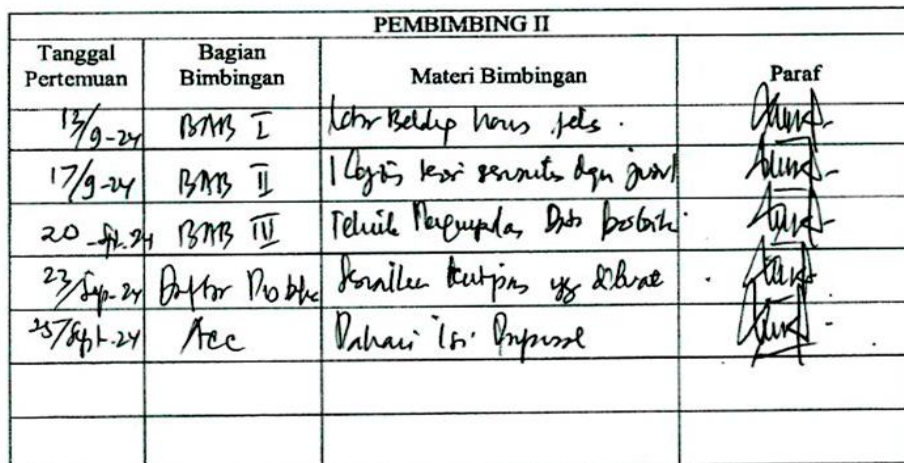 PEMBIMBING II
Tanggal Pertemuan
Bagian Bimbingan
Materi Bimbingan
Paraf
13/9-24 BAB I harus jelas.
17/9-24 BAB II teori sesuai dgn judul
20-Sept-24 BAB III Teknik Pengumpulan Data perbaiki.
23/Sep-24 Daftar Pustaka Sesuaikan Kutipan yg dibuat
25/Sept-24 Acc Pahami isi Proposal